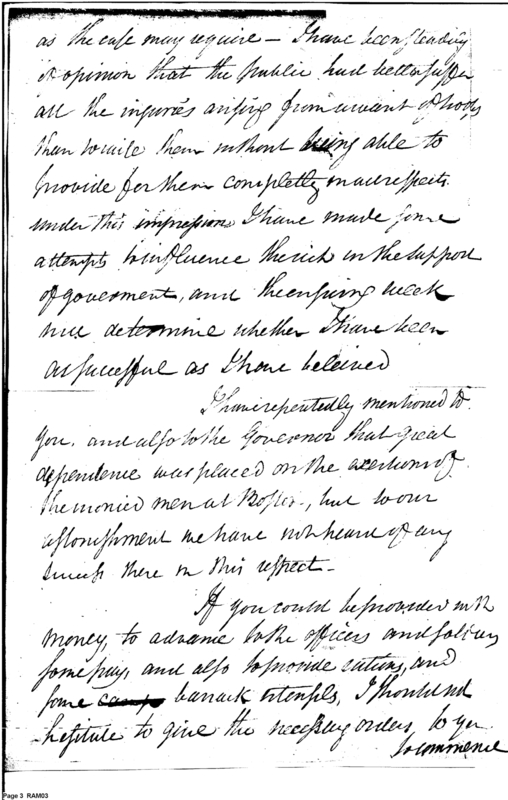 as the case may require — I have been steadily
of opinion that the public had better suffer
all the injuries arising from a want of troops
than to raise them without being able to
provide for them completly in all respects.
under this impression I have made some
attempts to influence the rich in the support
of goverment, and the ensuing week
will determine whether I have been
as successful as I have beleived
I have repeatedly mentioned to
you, and also to the Governor that great
dependence was placed on the exertions of
the monied men at Boston, but to our
astonishment we have not heard of any
success there in this respect —
If you could be provided with
money, to advance to the officers and soldiers
some pay, and also to provide rations, and
some camp barrack utensils, I should not
hesitate to give the necessary orders to you
to commence
Page 3 RAM03